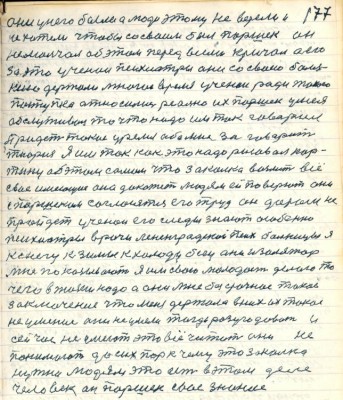 они у него были а люди этому не верили и 177
не хотели чтобы со своим был поршек он
не молчал об этом перед всеми кричал а его
за это ученои психиатры они со свою больн-
держали многои время ученои ради такого
поступка относились реално их поршек умея
обслуживал то что надо им так говарил
придет такие а время обо мне за говарят
теория Я им так как это надо рисовал кар-
тину об этом самом что заноика возмит всё
свае имеющие она докажет людям ей поверют они
с поршеком согласятся его труд он даром не
пройдет ученои его следы знают особенно
психиатры врачи Ленинградской псих больницы Я
к снегу к зимы к холоду беу она изолятор
мне показывают Я им свою молодост делаго то
чего в жизни надо а они мне бесрочное такое
заключение что меня держали в них их такое
неумение они не умели тогда розуродоват и
сейчас не умеют это всё читат они не
понимают до сих пор к чему это заноика
нужна людям это ест в этом деле
человек он поршек свае знание